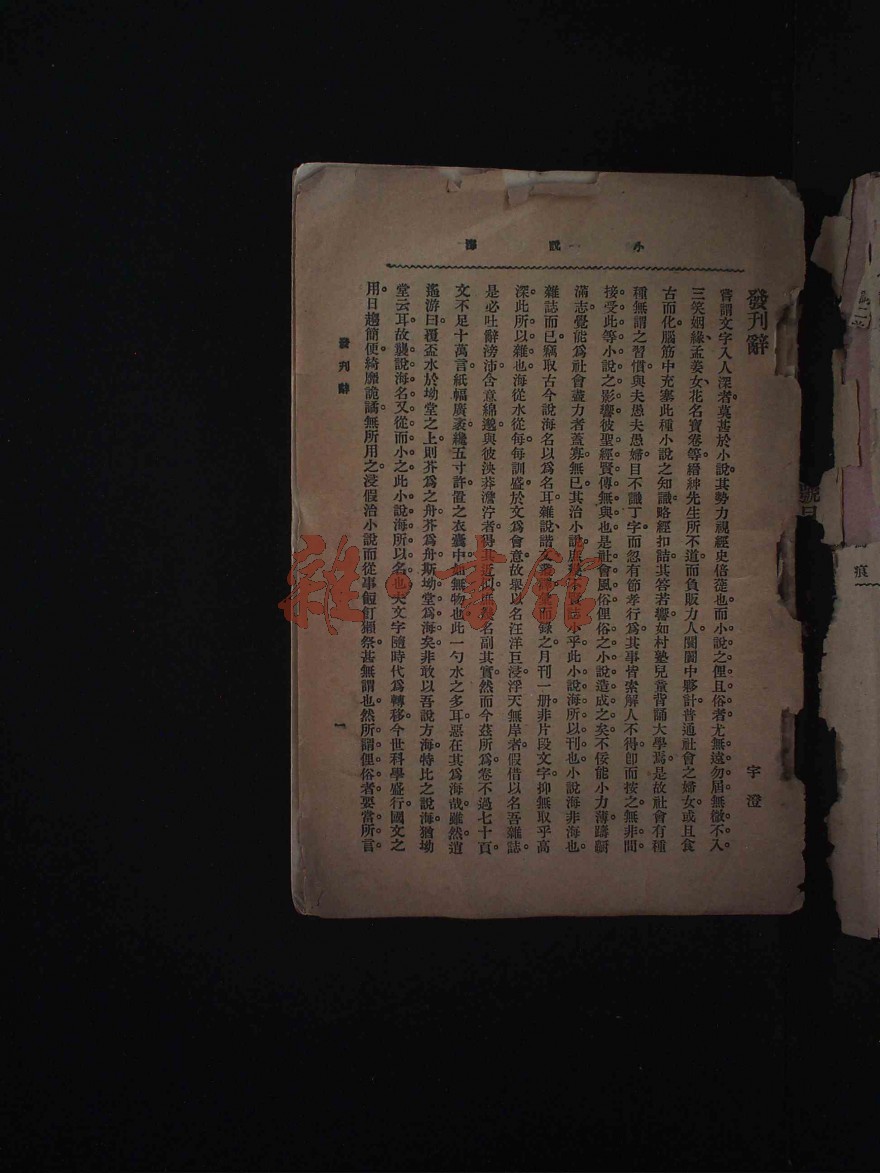 小說海
發刊辭
宇澄
嘗謂文字入人深者。莫甚於小說。其勢力視經史倍蓰也。而小說之俚且俗者。尤無遠勿屆。無微不入。
三笑姻緣、孟姜女、花名寶卷等。縉紳先生所不道。而負販力人。閨閫中夥計。普通社會之婦女。或且食
古而化。腦筋中充塞此種小說之知識。略經扣詰。其答若響。如村塾兒童背誦大學焉。是故社會有種
種無謂之習慣。與夫愚夫愚婦。目不識丁字。而忽有節孝行為。其事皆索解人不得。卽而按之。無非間
接受此等小說之影響。彼聖經賢傳無與也。是社會風俗。俚俗之小說造成之矣。不佞能小力薄。躊躇
滿志。覺能爲社會盡力者蓋寡。無已。其治小說
雜誌而已。竊取古今說海名以爲名耳。雜說、諧文
而錄之。月刊一册。非片段文字。抑無取乎高
深。此所以雜也。海從水從每。每訓盛。於文爲會意。故舉以名汪洋巨浸。浮天無岸者。假借以名吾雜誌。
是必吐辭滂沛。含意綿邈。與彼泱莽澹濘者。得其近似。庶幾名副其實。然而今茲所爲卷不過七十頁。
文不足十萬言。紙幅廣袤纔五寸許。置之衣囊中如無物也。此一勺水之多耳。惡在其爲海哉。雖然。逍
遙游曰。覆盃水於坳堂之上。則芥爲之舟。芥爲舟。斯坳堂爲海矣。非敢以吾說方海。特比之說海。猶坳
堂云耳。故襲說海名。又從而小之。此小說海所以名也。夫文字隨時代爲轉移。今世科學盛行。國文之
用。日趨簡便。綺靡詭譎。無所用之。浸假治小說而從事飣餖獺祭。甚無謂也。然所謂俚俗者。要當所言
發刊辭
一
號
痕
雜·書館